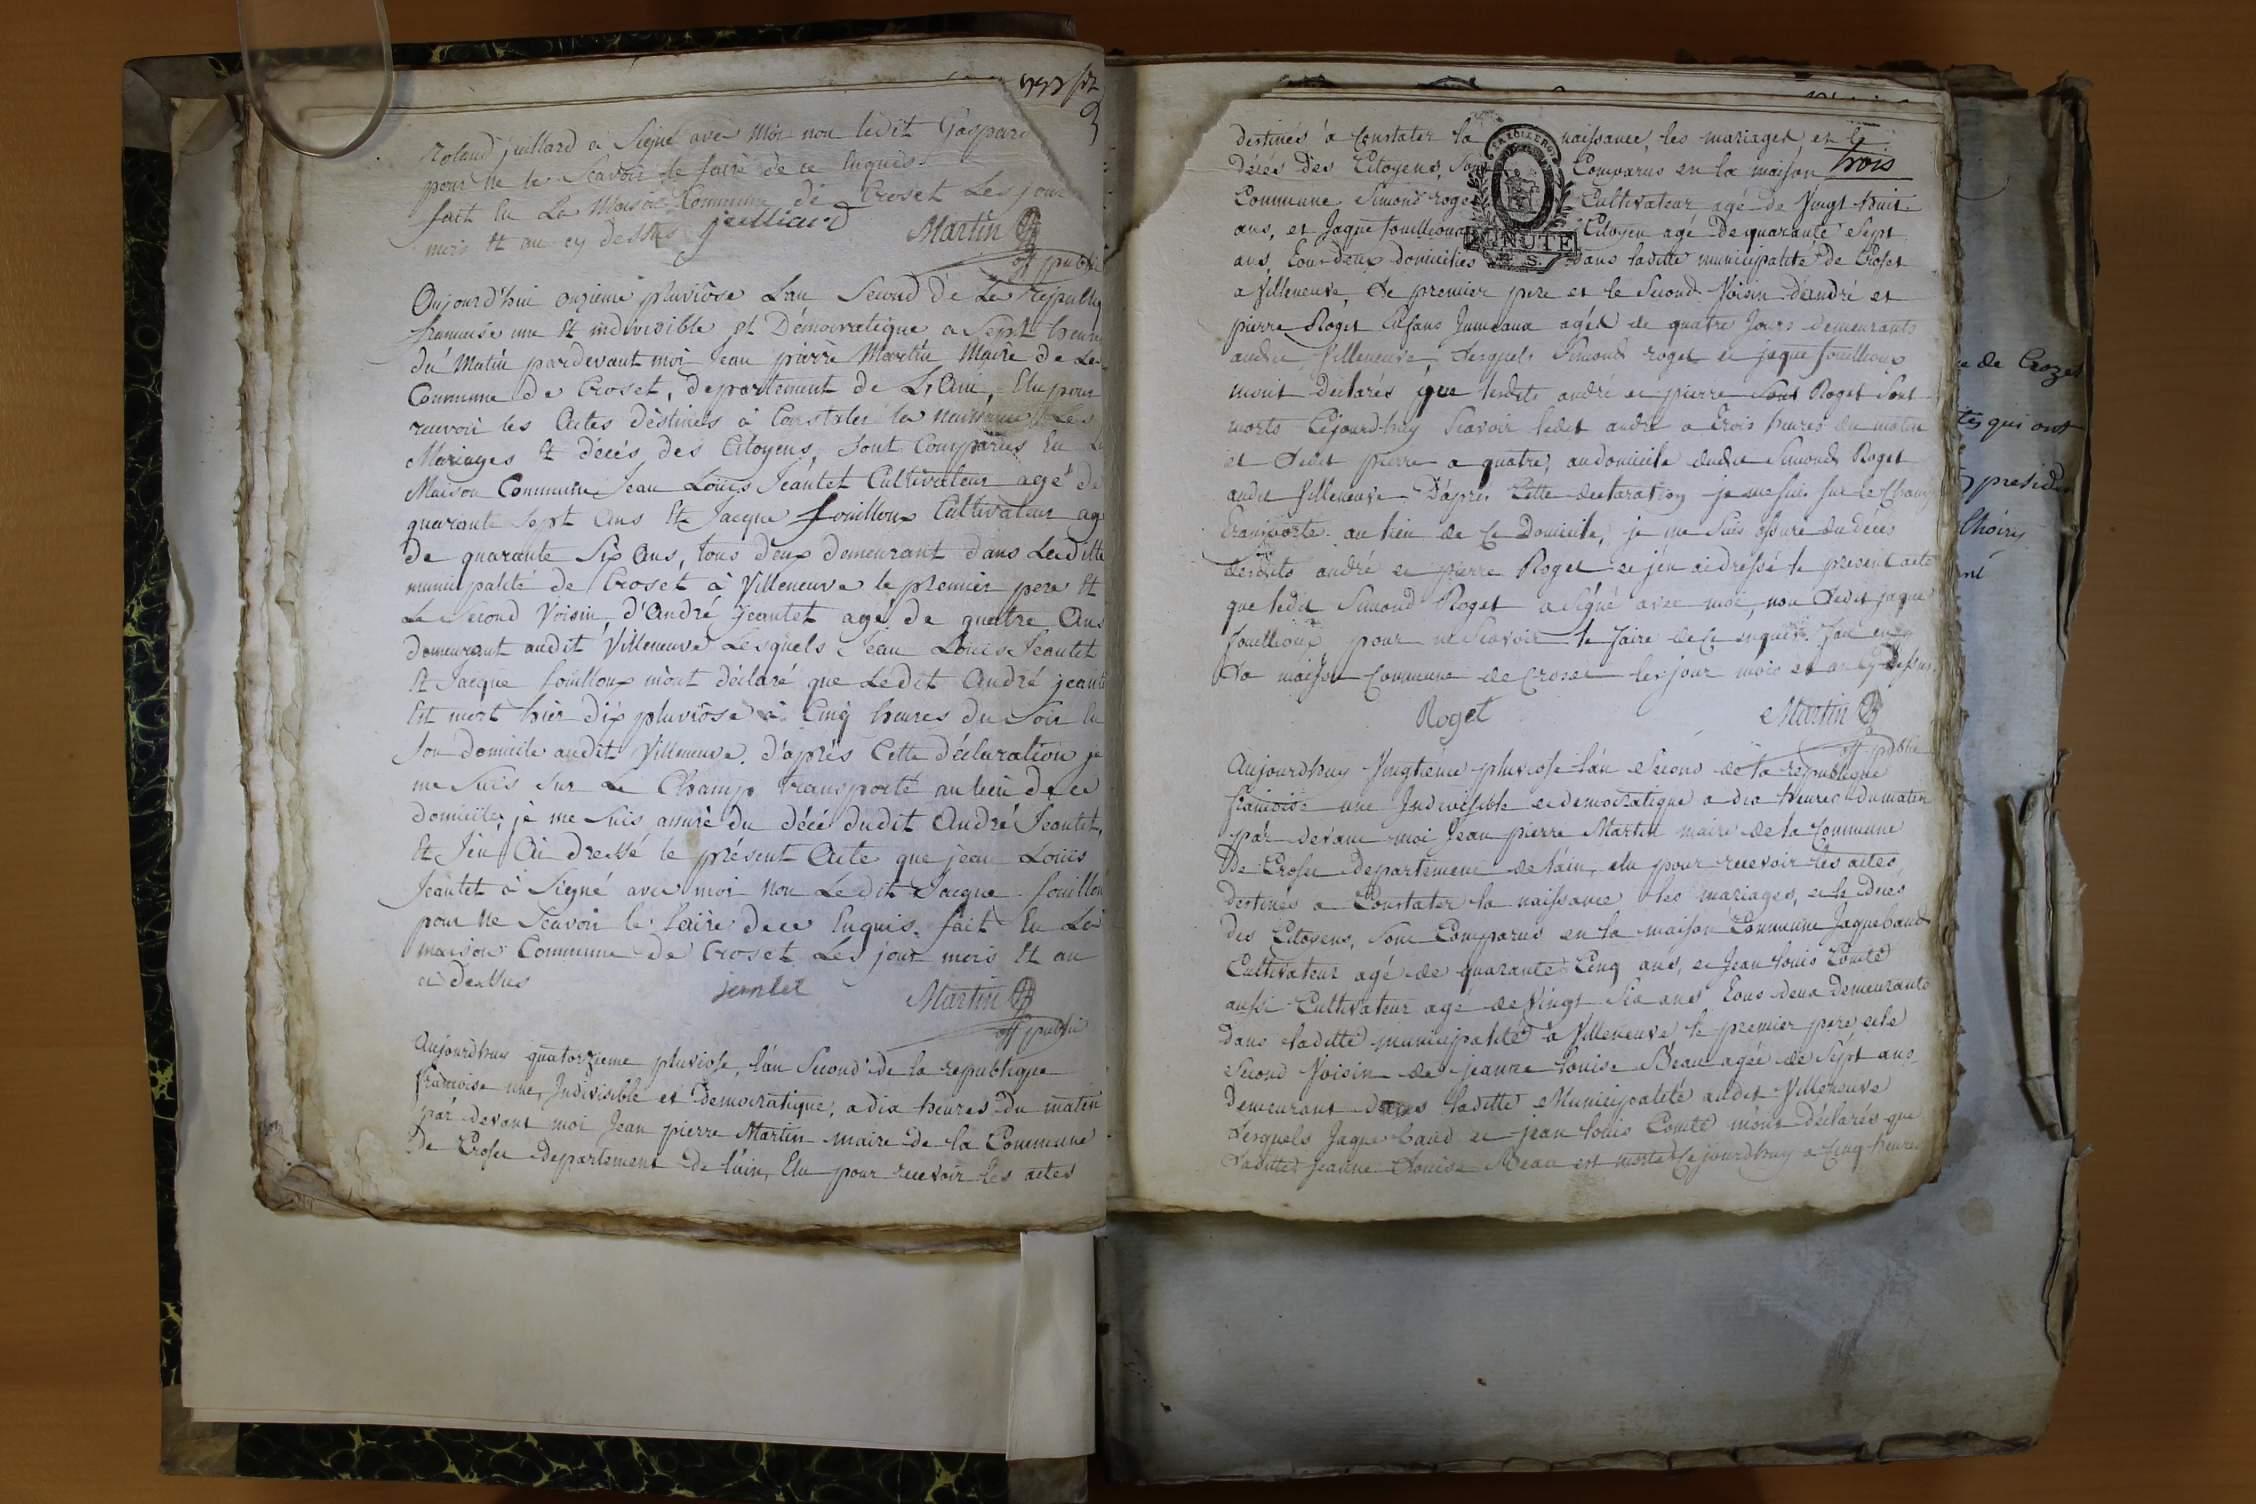 Roland juillard a Signé avec Moi non ledit Gaspard
pour ne le Scavoir le faire de ce Enquis
fait En La Maison Commune de Croset Les jour
mois Et an cy dessus juilliard Martin
off public
Aujourd'hui onzieme pluviôse L'an Second de La Républiq
francoise une Et indivisible Et Démocratique a Sept heures
du Matin pardevant moi Jean pierre Martin Maire de La
Commune de Croset, departement de L'Ain, Elu pour
recevoir les Actes déstinés à Constater la naissance Les
Mariages Et décés des Citoyens, Sont Comparus En La
Maison Commune Jean Louis Jeantet Cultivateur agé de
quarante Sept ans Et Jacque fouilloux Cultivateur ag
de quarante Six ans, tous deux demeurant dans Laditte
municipalité de Croset à Villeneuve le premier pere Et
Le Second Voisin d'André Jeantet agé de quatre Ans
Demeurant audit Villeneuve Lesquels Jean Louis Jeantet
Et Jacque fouilloux m'ont déclaré que Ledit André jeante
Est mort hier dix pluviôse à Cinq heures du Soir En
Son domicile audit Villeneuve. d'aprés Cette déclaration je
me Suis Sur Le Champ transporté au lieu de ce
domicile, je me Suis assuré du décé dudit André Jeantet,
Et J'en Ai dressé le présent Acte que jean Louis
Jeantet à Signé avec moi non Ledit Jacque fouillou
pour ne Scavoir le faire de ce Enquis. fait En La
maison Commune de Croset Les jour mois Et an
ci dessus jentet Martin
off public
Aujourdhuy quatorzieme pluviose, l'an Second de la republique
francoise une, Indivisible et Democratique, a dix heures Du matin
par devant moi Jean pierre Martin maire de la Commune
De Croset departement de l'ain, Elu pour recevoir les actes
destinés a Constater la naissance, les mariages, et le
décés des Citoyens, Sont Comparus en la maison trois
Commune Simond roget Cultivateur agé de Vingt huit
ans, et Jaque fouilloux Citoyen agé de quarante Sept
LA LOI LE ROI
MINUTE
S.
ans, tous deux domiciliés dans laditte municipalité de Croset
a Villeneuve, Le premier pere et le Second Voisin d'andré et
pierre Roget Enfans Jumeaux agés de quatre Jours demeurants
audit Villeneuve, Lesquels Simond roget et jaque fouilloux
mont déclarés que lesdits andré et pierre Sont Roget Sont
morts Cejourdhuy Scavoir ledit andré a trois heures du matin
et Ledit pierre a quatre, au domicile dudit Simond Roget
audit Villeneuve. D'après Cette declaration je me suis sur le Champ
transporté au lieu de Ce Domicile, je me Suis assuré du déce
desdits andré et pierre Roget et j'en ai dressé le present acte
que ledit Simond Roget a Signé avec moi, non Ledit jaque
fouilloux, pour ne Scavoir le faire de ce enquis. fait en
La maison Commune de Croset les jour mois et an cy dessus.
Roget Martin
off public
Aujourdhuy Vingtieme pluviose l'an Second de la republique
francoise une Indivisible et democratique a dix heures du matin
par devant moi Jean pierre Martin maire de la Commune
De Croset departement de l'ain, elu pour recevoir les actes
destinés a Constater la naissance les mariages, et le Decés
des Citoyens, Sont Comparus en la maison Commune Jaque baud
Cultivateur agé de quarante Cinq ans, et Jean louis Comte
aussi Cultivateur agé de Vingt Six ans tous deux Demeurants
Dans laditte municipalité à Villeneuve le premier pere, et le
Second Voisin de jeanne louise Beau agée de Sept ans
Demeurant dans laditte Municipalité audit Villeneuve
Lesquels Jaque baud et jean louis Comte m'ont déclarés que
Laditte jeanne Louise Beau est morte Cejourdhuy a Cinq heures
e de Crozet
tes qui ont
presiden
Choiry